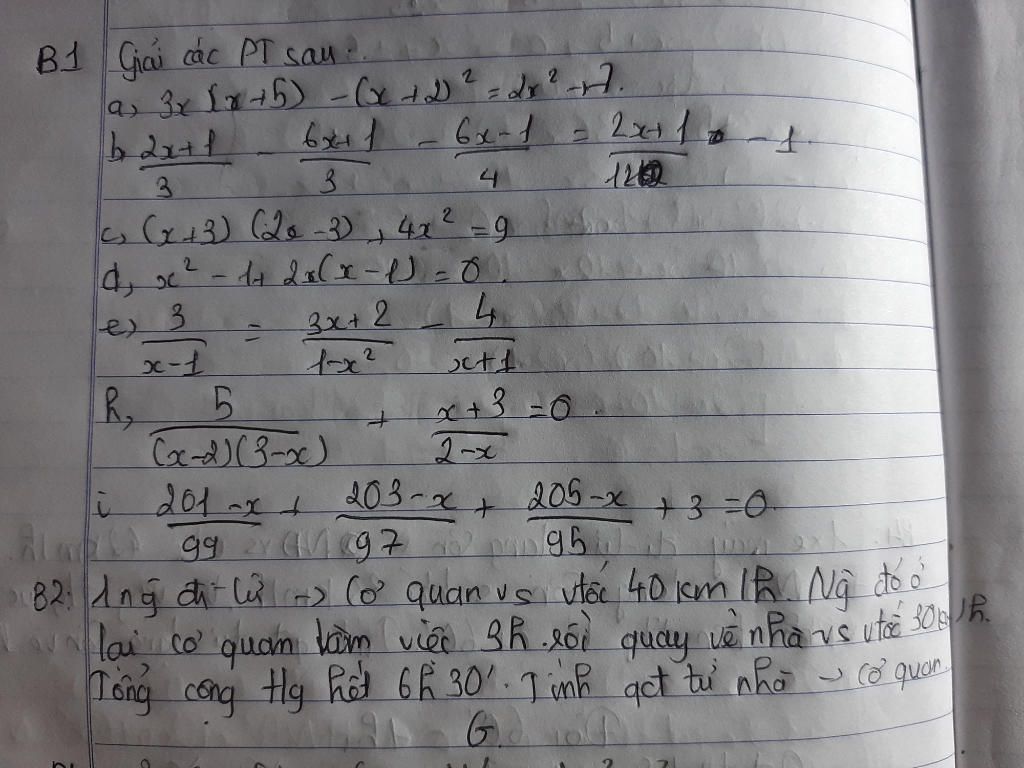 B1 Giải các PT sau:
a, 3x(x+5) - (x+2)² = 2x² + 7.
b, \frac{2x+1}{3} - \frac{6x+1}{3} - \frac{6x-1}{4} = \frac{2x+1}{12} - 1.
c, (x+3)(2x-3) + 4x² = 9
d, x² - 1 + 2x(x-1) = 0.
e, \frac{3}{x-1} = \frac{3x+2}{1-x²} - \frac{4}{x+1}
h, \frac{5}{(x-2)(3-x)} + \frac{x+3}{2-x} = 0.
i \frac{201-x}{99} + \frac{203-x}{97} + \frac{205-x}{95} + 3 = 0.
B2: 1 ng đi từ → cơ quan vs vtốc 40 km/h. Ng đó ở
lại cơ quan làm việc 3h rồi quay về nhà vs vtốc 30 km/h.
Tổng cộng tg hết 6h30'. Tính qđt từ nhà → cơ quan.
G.